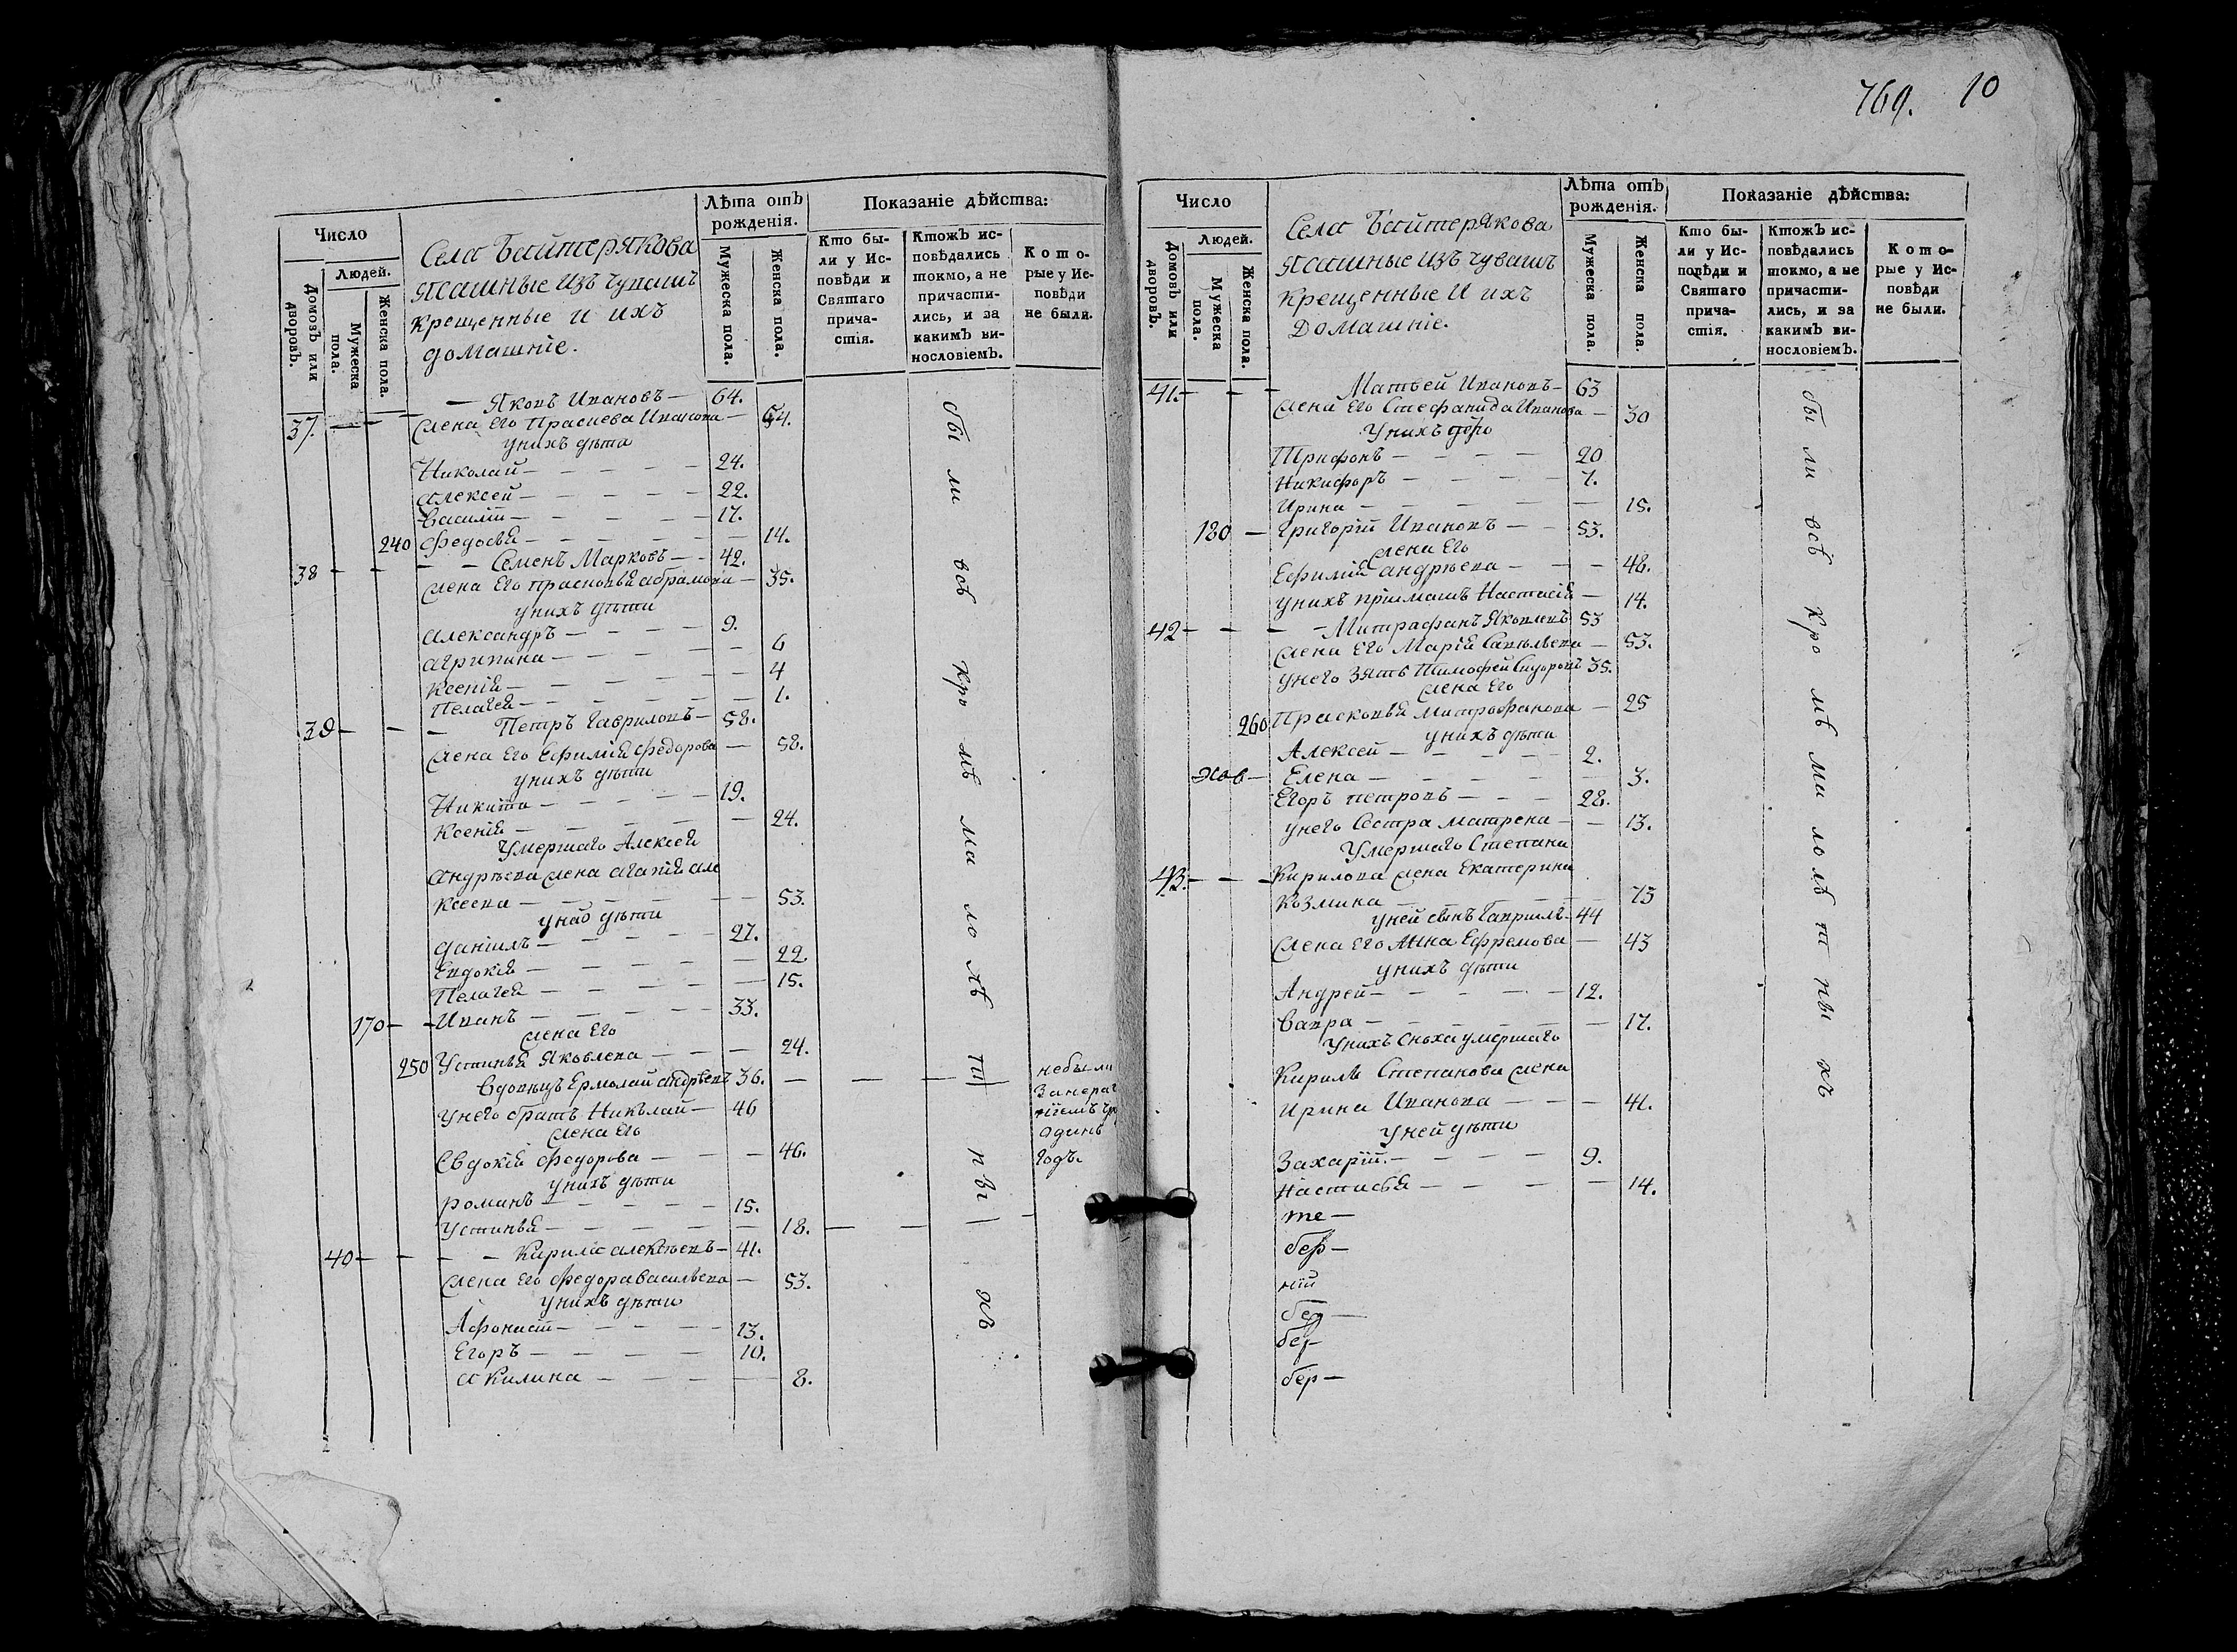 769. 10
Число
Людей.
Домовъ или дворовъ.
Мужеска пола.
Женска пола.
Села Байтерякова
ясашные изъ чувашъ
крещенные и ихъ
домашніе.
Лѣта отъ рожденія.
Мужеска пола.
Женска пола.
Показаніе дѣйства:
Кто бы-
ли у Ис-
повѣди и
Святаго
прича-
стія.
Ктожъ ис-
повѣдались
токмо, а не
причасти-
лись, и за
какимъ ви-
нословіемъ.
Кото-
рые у Ис-
повѣди
не были.
37. — Яковъ Ивановъ — 64.
жена его Ивановa — 64.
у нихъ дѣти
Николай — 24.
Алексей — 22.
Василій — 17.
240 Федосья — 14.
38 — Семенъ Марковъ — 42.
жена его Прасковья Абрамова — 35.
у нихъ дѣти
Александръ — 9.
Агрипина — 6
Ксенія — 4
Пелагея — 1.
39 — Петръ Гавриловъ — 58.
жена его Ефимія Федорова — 58.
у нихъ дѣти
Никита — 19.
Ксенія — 24.
Умершаго Алексея
Андрѣева жена Агапія Але
ксеева — 53.
дѣти
Даніилъ — 27.
Евдокія — 22.
Пелагея — 15.
170 — Иванъ — 33.
жена его
250 Устинья Яковлева — 24.
Вдовецъ Ермолай Андрѣевъ 36.
у него братъ Николай — 46
жена его
Евдокія Федорова — 46.
у нихъ дѣти
Романъ — 15.
Устинья — 18.
40 — Кирила Алексѣевъ — 41.
жена его Федора Васильева — 53.
у нихъ дѣти
Афонасій — 13.
Егоръ — 10.
Акилина — 8.
бы ли всѣ кро мѣ ма ло лѣ т н ы хъ
небыли
одинъ
годъ.
Число
Людей.
Домовъ или дворовъ.
Мужеска пола.
Женска пола.
Села Байтерякова
ясашные изъ чувашъ
крещенные и ихъ
домашніе.
Лѣта отъ рожденія.
Мужеска пола.
Женска пола.
Показаніе дѣйства:
Кто бы-
ли у Ис-
повѣди и
Святаго
прича-
стія.
Ктожъ ис-
повѣдались
токмо, а не
причасти-
лись, и за
какимъ ви-
нословіемъ.
Кото-
рые у Ис-
повѣди
не были.
41. — Матвей Ивановъ — 63
жена его Стефанида Иванова — 30
у нихъ
Трифонъ — 20
Никифоръ — 7.
Ирина — 15.
180 — Григорій Ивановъ — 53.
жена его
Ефимія Андрѣева — 48.
у нихъ Настасія — 14.
42 — Митрафанъ Яковлевъ 53
жена его Марія Савельева — 53.
у него зять Тимофей Сидоровъ 35.
жена его
260 Прасковья Митрофанова — 25
у нихъ дѣти
Алексей — 2.
Елена — 3.
Егоръ Петровъ — 28.
у него сестра Матрена — 13.
Умершаго Степана
43. — Кирилова жена Екатерина
Козмина — 73
у ней сынъ Гаврилъ — 44
жена его Анна Ефремова — 43
у нихъ дѣти
Андрей — 12.
Варра — 17.
у нихъ сноха умершаго
Кирилы Степанова жена
Ирина Иванова — 41.
у ней дѣти
Захарій. — 9.
Настасья — 14.
те —
ній
бы ли всѣ кро мѣ ма ло лѣ т ны хъ